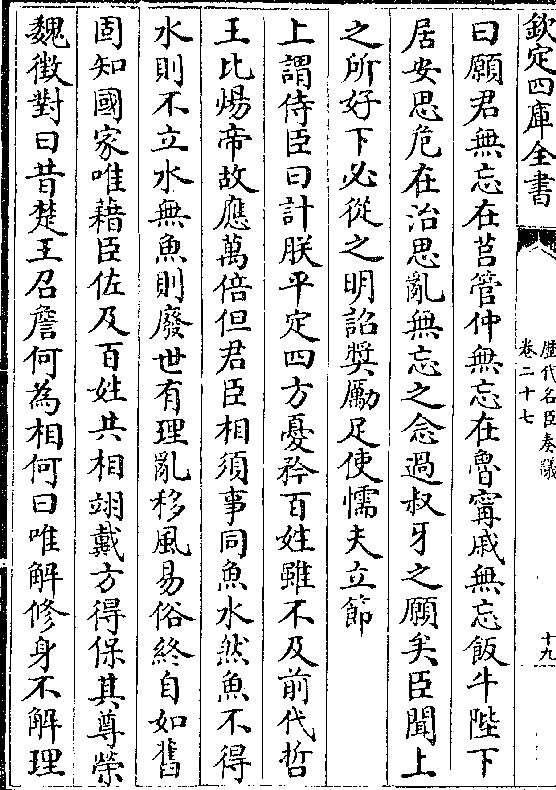 欽定四庫全書
歷代名臣奏議
卷二十七
十九
曰願君無忘在莒管仲無忘在魯寗戚無忘飯牛陛下
居安思危在治思亂無忘之念過叔牙之願矣臣聞上
之所好下必從之明詔奬勵足使懦夫立節
上謂侍臣曰計朕平定四方憂矜百姓雖不及前代哲
王比煬帝故應萬倍但君臣相須事同魚水然魚不得
水則不立水無魚則廢世有理亂移風易俗終自如舊
固知國家唯藉臣佐及百姓共相翊戴方得保其尊榮
魏徵對曰昔楚王召詹何為相何曰唯解修身不解理